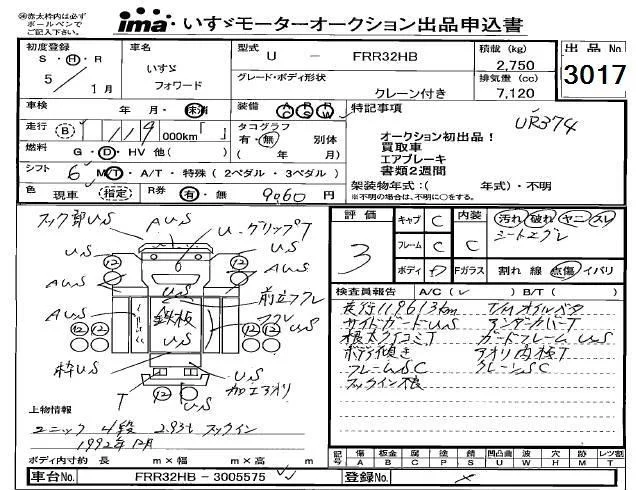 ㊟赤太枠内は必ず
ボールペンで
ご記入下さい。
ima いすゞモーターオークション出品申込書
初度登録
S・H・R
5/1月
車名
いすゞ
フォワード
型式
U - FRR32HB
グレード・ボディ形状
クレーン付き
積載 (kg)
2,750
排気量 (cc)
7,120
出品No
3017
車検 年 月・抹消
装備 A/C P/S P/W
特記事項
UR374
走行 (B) 119 000km「 」
タコグラフ
有・無 別体
( 年 月)
オークション初出品！
買取車
エアブレーキ
書類2週間
燃料 G・D・HV 他( )
シフト 6 M/T・A/T・特殊 ( 2ペダル・3ペダル )
架装物年式:( 年式)・不明
※不明の場合は、不明に○をする。
色 現車 (指定) R券 有・無 9060 円
フック部US AUS
U・グリップT
US
AUS
AUS
鉄板
US
枠US
T
US
US
上物情報
ユニック 4段 2.93t フックイン
1992年12月
ボディ内寸約 長 m×幅 m×高 m
評価
3
キャブ C
フレーム C
ボディ D
内装 C
Fガラス
汚れ 破れ ヤニ スレ
シートエグレ
割れ 線 点傷 イバリ
検査員報告 A/C ( ✓ ) B/T ( )
走行119613km
サイドガードUS アンダーカバーT
ガードフレームUS
ボディ傾き アオリ内板T
フレームSC クレーンSC
記号 傷 板金 腐 塗 錆 凹凸曲 波 穴 跡 レツ割
A B C P S U W H M T
車台No. FRR32HB - 3005575
登録No.